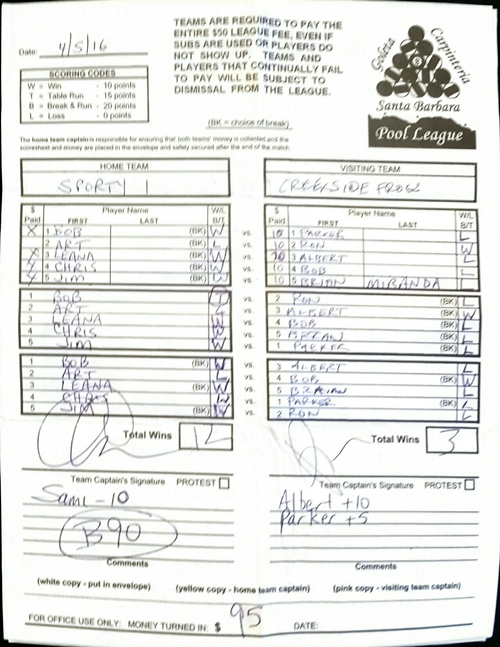 Date: 4/5/16
TEAMS ARE REQUIRED TO PAY THE
ENTIRE $50 LEAGUE FEE, EVEN IF
SUBS ARE USED OR PLAYERS DO
NOT SHOW UP. TEAMS AND
PLAYERS THAT CONTINUALLY FAIL
TO PAY WILL BE SUBJECT TO
DISMISSAL FROM THE LEAGUE.
Goleta Carpinteria
Santa Barbara
Pool League
SCORING CODES
W = Win - 10 points
T = Table Run - 15 points
B = Break & Run - 20 points
L = Loss - 0 points
(BK = choice of break)
The home team captain is responsible for ensuring that both teams' money is collected and the
scoresheet and money are placed in the envelope and safely secured after the end of the match.
HOME TEAM VISITING TEAM
SPORTY 1 CREEKSIDE FROGS
$ Paid Player Name FIRST LAST W/L B/T $ Paid Player Name FIRST LAST W/L B/T
X 1 BOB (BK) W vs. 10 1 PARKER L
2 ART L vs. 10 2 RON (BK) W
X 3 LEANA (BK) W vs. 3 ALBERT L
4 CHRIS (BK) W vs. 10 4 BOB L
5 JIM (BK) W vs. 10 5 BRIAN MIRANDA L
1 BOB vs. 2 RON (BK) L
2 ART L vs. 3 ALBERT (BK) W
3 LEANA W vs. 4 BOB (BK) L
4 CHRIS W vs. 5 BRIAN (BK) L
5 JIM W vs. 1 PARKER (BK) L
1 BOB (BK) W vs. 3 ALBERT L
2 ART L vs. 4 BOB (BK) W
3 LEANA (BK) W vs. 5 BRIAN L
4 CHRIS W vs. 1 PARKER (BK) L
5 JIM (BK) W vs. 2 RON L
Total Wins 12 Total Wins 3
Team Captain's Signature PROTEST Team Captain's Signature PROTEST
Sami -10 Albert +10
B90 Parker +5
Comments Comments
(white copy - put in envelope) (yellow copy - home team captain) (pink copy - visiting team captain)
FOR OFFICE USE ONLY: MONEY TURNED IN: $ 95 DATE: